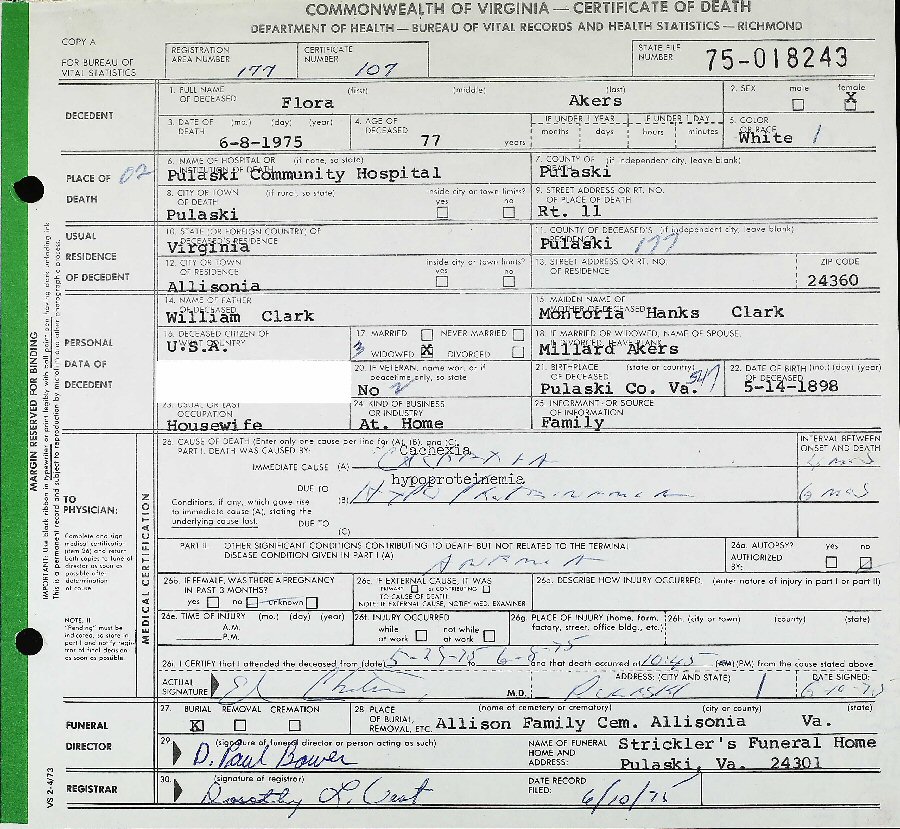 COMMONWEALTH OF VIRGINIA — CERTIFICATE OF DEATH
DEPARTMENT OF HEALTH — BUREAU OF VITAL RECORDS AND HEALTH STATISTICS — RICHMOND
COPY A
FOR BUREAU OF VITAL STATISTICS
REGISTRATION AREA NUMBER 177
CERTIFICATE NUMBER 107
STATE FILE NUMBER 75-018243
DECEDENT
1. FULL NAME OF DECEASED (first) (middle) (last)
Flora Akers
2. SEX male female X
3. DATE OF DEATH (mo.) (day) (year)
6-8-1975
4. AGE OF DECEASED
77 years
IF UNDER 1 YEAR months days
IF UNDER 1 DAY hours minutes
5. COLOR OR RACE
White 1
PLACE OF DEATH 02
6. NAME OF HOSPITAL OR INSTITUTION OF DEATH (if none, so state)
Pulaski Community Hospital
7. COUNTY OF DEATH (if independent city, leave blank)
Pulaski
8. CITY OR TOWN OF DEATH (if rural, so state)
Pulaski
inside city or town limits? yes no
9. STREET ADDRESS OR RT. NO. OF PLACE OF DEATH
Rt. 11
USUAL RESIDENCE OF DECEDENT
10. STATE (OR FOREIGN COUNTRY) OF DECEASED'S RESIDENCE
Virginia
11. COUNTY OF DECEASED'S RESIDENCE (if independent city, leave blank)
Pulaski 177
12. CITY OR TOWN OF RESIDENCE
Allisonia
inside city or town limits? yes no
13. STREET ADDRESS OR RT. NO. OF RESIDENCE
ZIP CODE
24360
PERSONAL DATA OF DECEDENT
14. NAME OF FATHER OF DECEASED
William Clark
15. MAIDEN NAME OF MOTHER OF DECEASED
Mondoria Hanks Clark
16. DECEASED CITIZEN OF WHAT COUNTRY
U.S.A.
17. MARRIED NEVER MARRIED
3 WIDOWED X DIVORCED
18. IF MARRIED OR WIDOWED, NAME OF SPOUSE, IF DIVORCED, LEAVE BLANK
Millard Akers
20. IF VETERAN, name war, or if peacetime only, so state
No 2
21. BIRTHPLACE OF DECEASED (state or country)
Pulaski Co. Va. 547
22. DATE OF BIRTH (mo.) (day) (year) OF DECEASED
5-14-1898
23. USUAL OR LAST OCCUPATION
Housewife
24. KIND OF BUSINESS OR INDUSTRY
At. Home
25. INFORMANT OR SOURCE OF INFORMATION
Family
MARGIN RESERVED FOR BINDING
IMPORTANT: Use black ribbon in typewriter or print legibly with ball point pen having dense indelible ink
This is a permanent record and subject to reproduction by microfilm and other photographic process.
MEDICAL CERTIFICATION
TO PHYSICIAN:
Complete and sign medical certification (item 26) and return both copies to funeral director as soon as possible after determination of cause
NOTE: If "Pending" must be indicated, so state in part I and notify registrar of final decision as soon as possible.
26. CAUSE OF DEATH (Enter only one cause per line for (A), (B), and (C).
INTERVAL BETWEEN ONSET AND DEATH
PART I. DEATH WAS CAUSED BY:
IMMEDIATE CAUSE (A) Cachexia CACHEXIA 6 mos
DUE TO hypoproteinemia
(B) Hypoproteinemia 6 mos
Conditions, if any, which gave rise to immediate cause (A), stating the underlying cause last.
DUE TO
(C)
PART II. OTHER SIGNIFICANT CONDITIONS CONTRIBUTING TO DEATH BUT NOT RELATED TO THE TERMINAL DISEASE CONDITION GIVEN IN PART I (A)
Anemia
26a. AUTOPSY? yes no
AUTHORIZED BY:
26b. IF FEMALE, WAS THERE A PREGNANCY IN PAST 3 MONTHS?
yes no unknown
26c. IF EXTERNAL CAUSE, IT WAS
PRIMARY or CONTRIBUTING
TO CAUSE OF DEATH
NOTE: IF EXTERNAL CAUSE, NOTIFY MED. EXAMINER
26d. DESCRIBE HOW INJURY OCCURRED (enter nature of injury in part I or part II)
26e. TIME OF INJURY (mo.) (day) (year)
A.M.
P.M.
26f. INJURY OCCURRED
while at work not while at work
26g. PLACE OF INJURY (home, farm, factory, street, office bldg., etc.)
26h. (city or town) (county) (state)
26i. I CERTIFY that I attended the deceased from (date) 5-29-75 to 6-8-75 and that death occurred at 10:45 (AM) (PM) from the cause stated above
ACTUAL SIGNATURE M.D.
ADDRESS: (CITY AND STATE)
Pulaski
DATE SIGNED:
6-10-75
FUNERAL DIRECTOR
27. BURIAL REMOVAL CREMATION
X
28. PLACE OF BURIAL, REMOVAL, ETC.
(name of cemetery or crematory) (city or county) (state)
Allison Family Cem. Allisonia Va.
29. (signature of funeral director or person acting as such)
D. Paul Bower
NAME OF FUNERAL HOME AND ADDRESS:
Strickler's Funeral Home
Pulaski, Va. 24301
REGISTRAR
30. (signature of registrar)
Dorothy L. Vest
DATE RECORD FILED:
6/10/75
VS 2-4/73